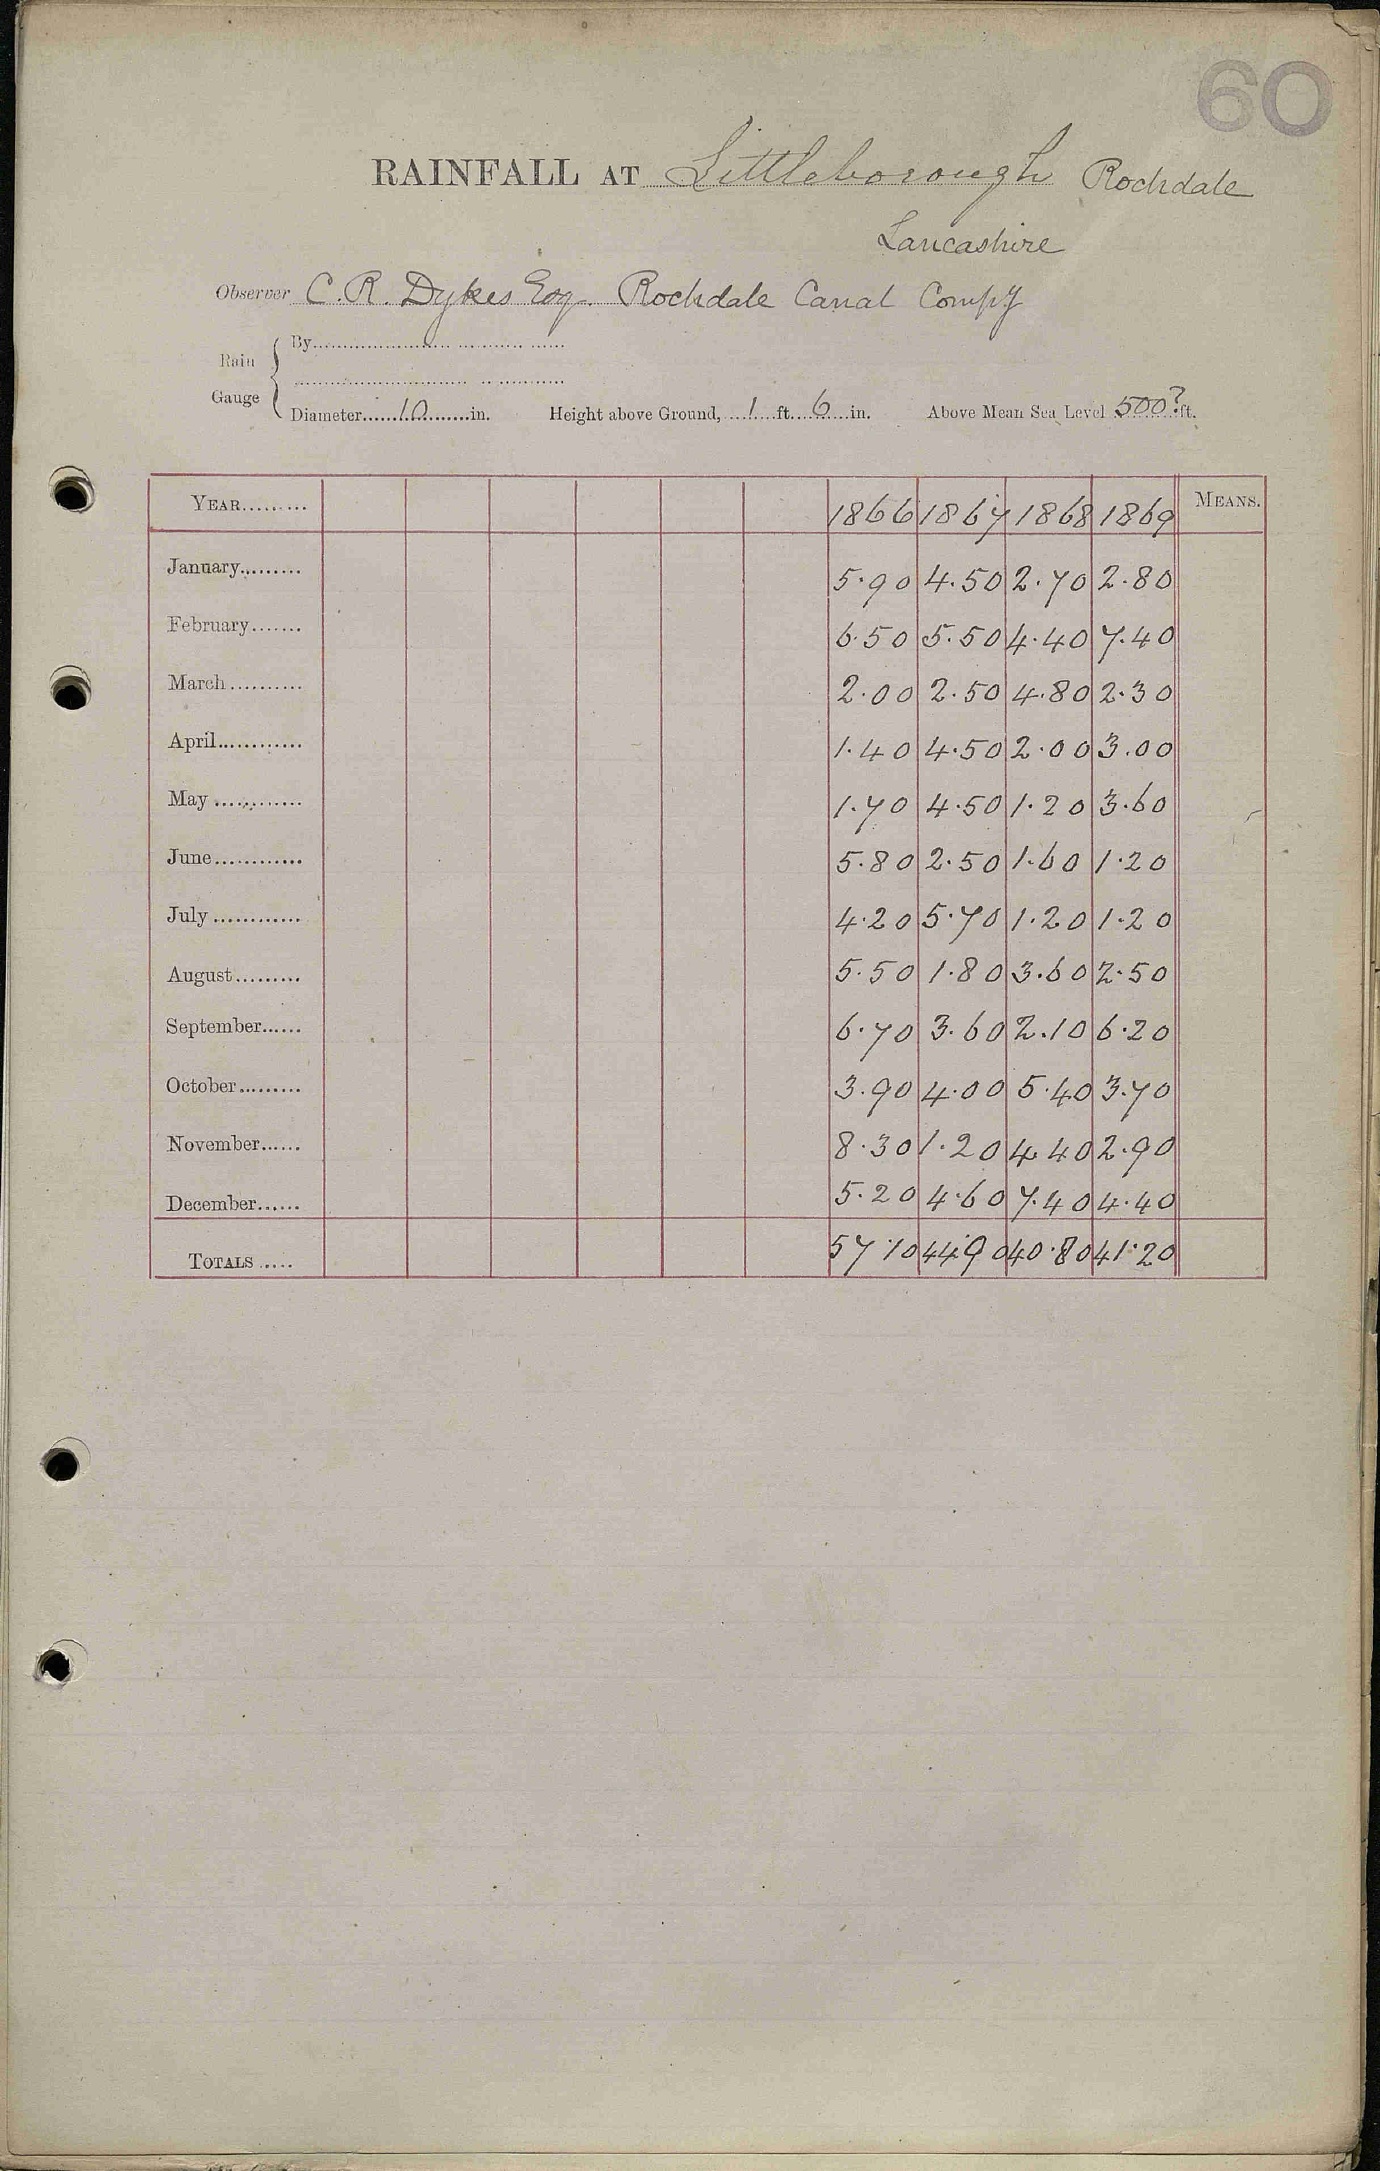 60
RAINFALL AT Littleborough Rochdale
Lancashire
Observer C. R. Dykes Esq. Rochdale Canal Compy
Rain Gauge
By
Diameter 10 in. Height above Ground, 1 ft. 6 in. Above Mean Sea Level 500? ft.
YEAR......... 1866 1867 1868 1869 MEANS.
January......... 5.90 4.50 2.70 2.80
February....... 6.50 5.50 4.40 7.40
March.......... 2.00 2.50 4.80 2.30
April............ 1.40 4.50 2.00 3.00
May ............ 1.70 4.50 1.20 3.60
June............ 5.80 2.50 1.60 1.20
July ............ 4.20 5.70 1.20 1.20
August......... 5.50 1.80 3.60 2.50
September...... 6.70 3.60 2.10 6.20
October......... 3.90 4.00 5.40 3.70
November...... 8.30 1.20 4.40 2.90
December...... 5.20 4.60 7.40 4.40
TOTALS ..... 57.10 44.90 40.80 41.20